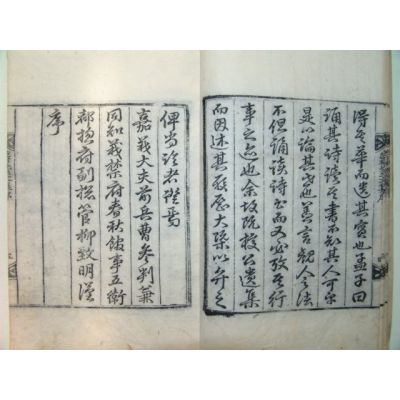 得其華而遺其實也孟子曰
誦其詩讀其書不知其人可乎
是以論其世也善言觀人之法
不但誦讀詩書而又必考其行
事之迹也余故旣校公遺集
而因述其履歷大槩以弁之
俾尚論者證焉
嘉義大夫前兵曹參判兼
同知義禁府春秋館事五衛
都摠府副摠管柳致明謹
序